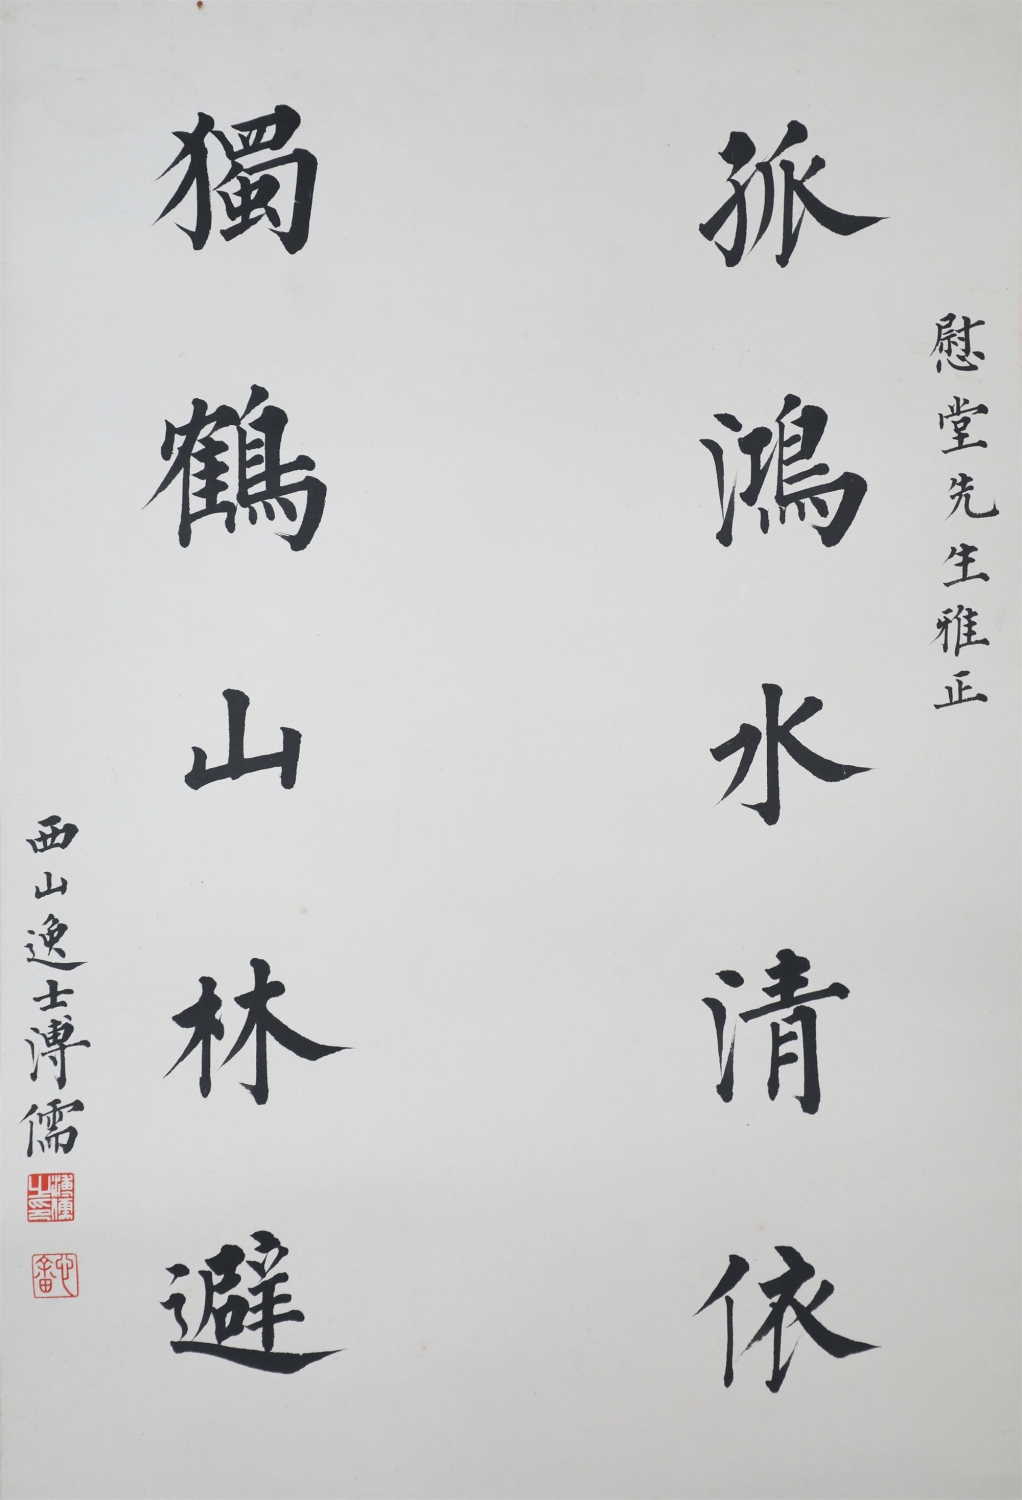 慰堂先生雅正
孤鴻水清依
獨鶴山林避
西山逸士溥儒
溥儒之印
心畬